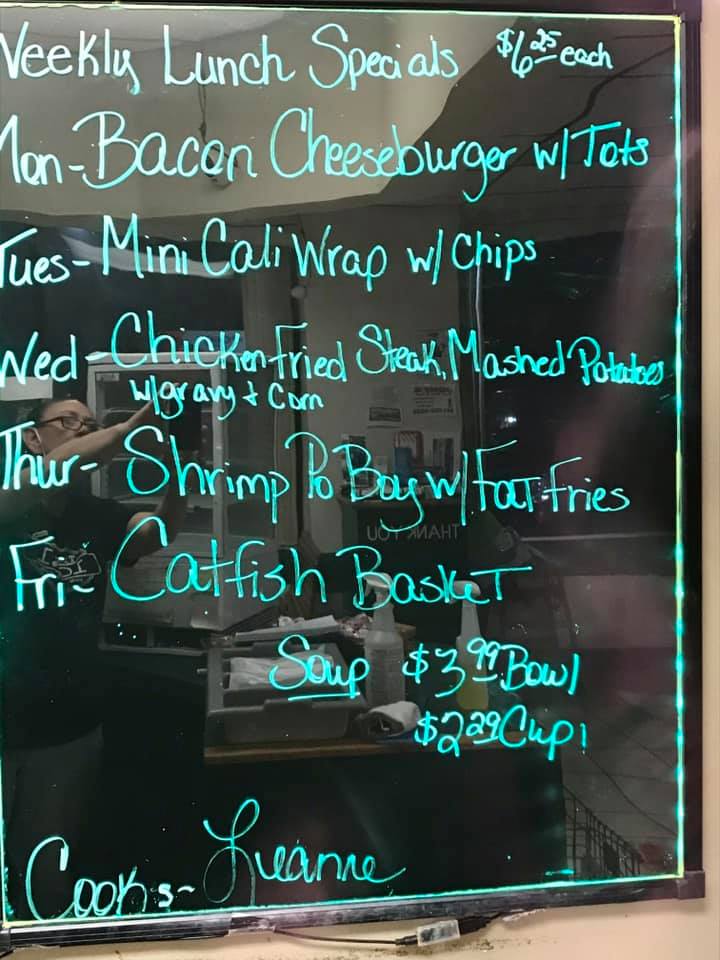 Weekly Lunch Specials $6.25 each
Mon-Bacon Cheeseburger w/Tots
Tues-Mini Cali Wrap w/ Chips
Wed-Chicken Fried Steak, Mashed Potatoes
w/gravy & Corn
Thur-Shrimp Po Boy w/ Fat Fries
Fri-Catfish Basket
THANK YOU
Soup $3.99 Bowl
$2.29 Cup
Cooks-Lueanne